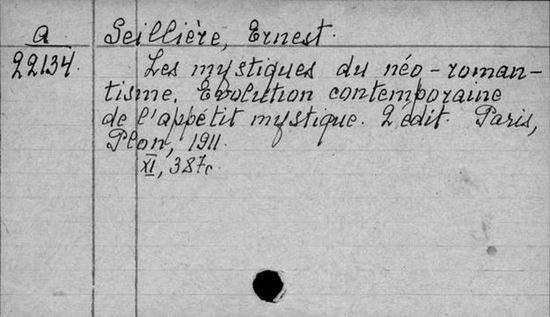 a Seillière, Ernest.
22134. Les mystiques du néo-roman-
tisme. Evolution contemporaine
de l'appétit mystique. 2 édit. Paris,
Plon, 1911.
XI, 387c.